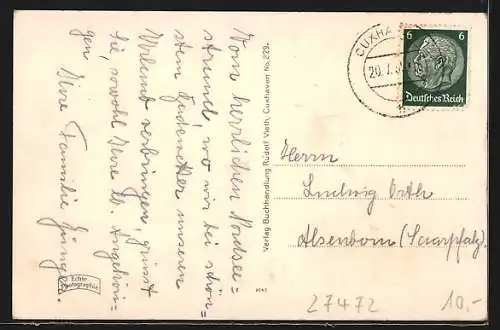 Vom herrlichen Nordsee-
strand, wo wir bei schön-
stem Badewetter unseren
Urlaub verbringen, grüsst
Sie, sowohl Ihre lb. Angehöri-
gen Ihre Familie
Echte Photographie
Verlag Buchhandlung Rudolf Vieth, Cuxhaven No. 229.
CUXHA
20.7.3
6 6
Deutsches Reich
Herrn
Ludwig Orth
Alsenborn (Saarpfalz).
27472
10.-